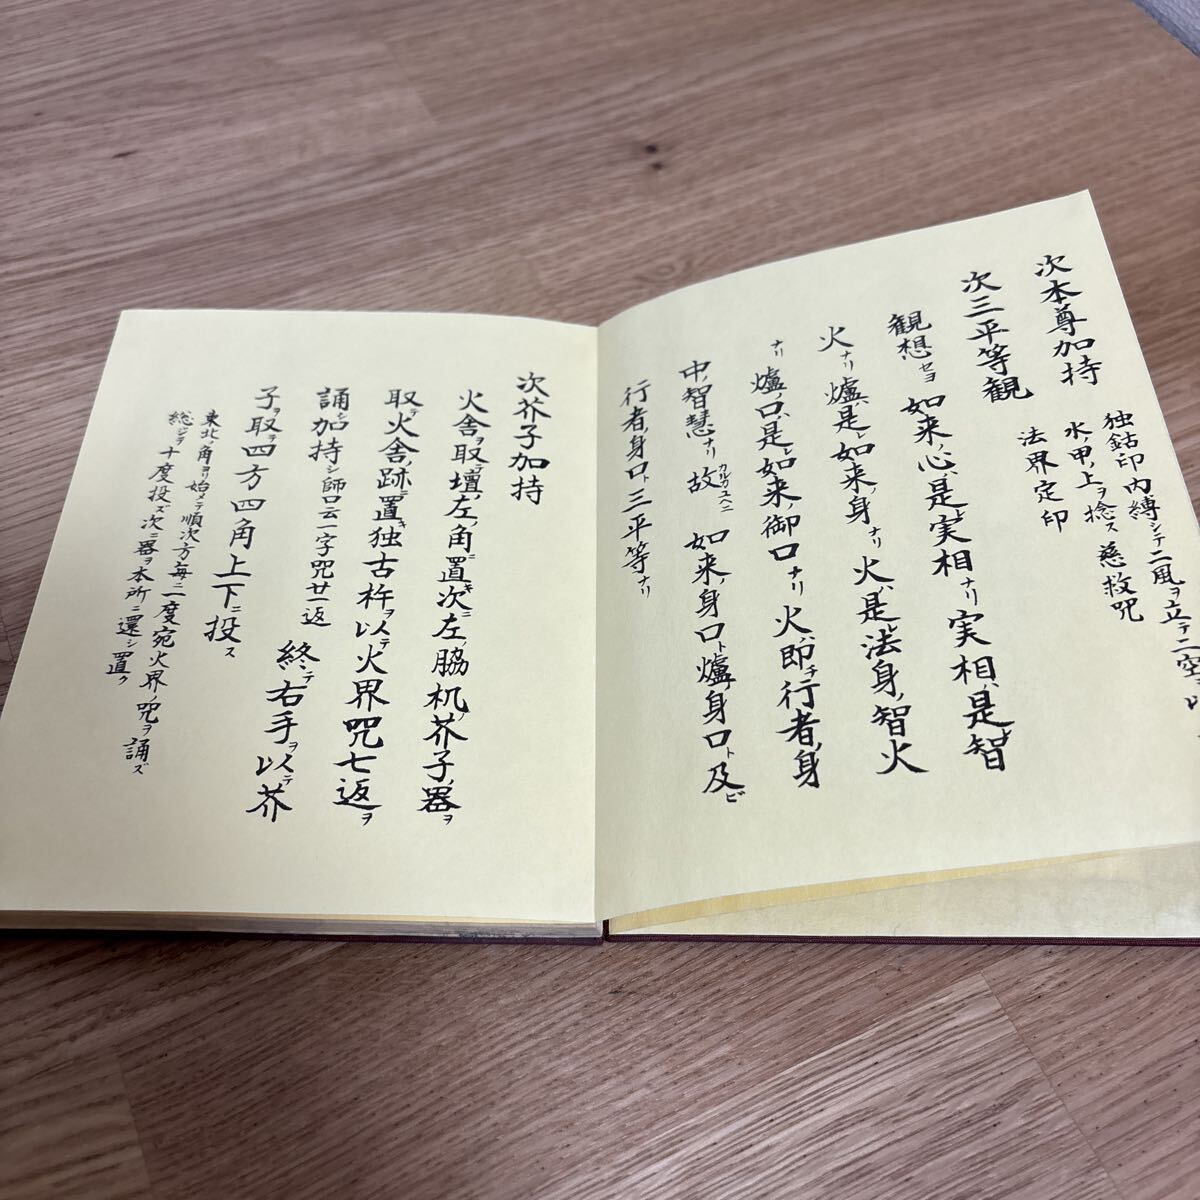 次本尊加持
独鈷印内縛シテ二風ヲ立テ二空
水ノ甲ノ上ヲ捻ス 慈救咒
次三平等観
法界定印
観想セヨ 如来ノ心ハ是レ実相ナリ 実相ハ是レ智
火ナリ 爐ハ是レ如来ノ身ナリ 火ハ是レ法身ノ智火
ナリ 爐ノ口ハ是レ如来ノ御口ナリ 火ハ即チ行者ノ身
中ノ智慧ナリ 故ニ 如来ノ身口ト爐ノ身口ト及ビ
カルガユヘニ
行者ノ身口ト三平等ナリ
次芥子加持
火舎ヲ取テ壇ノ左ノ角ニ置キ次ニ左ノ脇机ノ芥子ノ器ヲ
取テ火舎ノ跡ニ置キ独古杵ヲ以テ火界咒七返ヲ
誦シ加持シ師口云一字咒廿一返 終テ右手ヲ以テ芥
子ヲ取テ四方四角上下ニ投ス
東北ノ角ヨリ始メテ順次方毎ニ一度宛火界ノ咒ヲ誦ズ
総ジテ十度投ズ次ニ器ヲ本所ニ還シ置ク